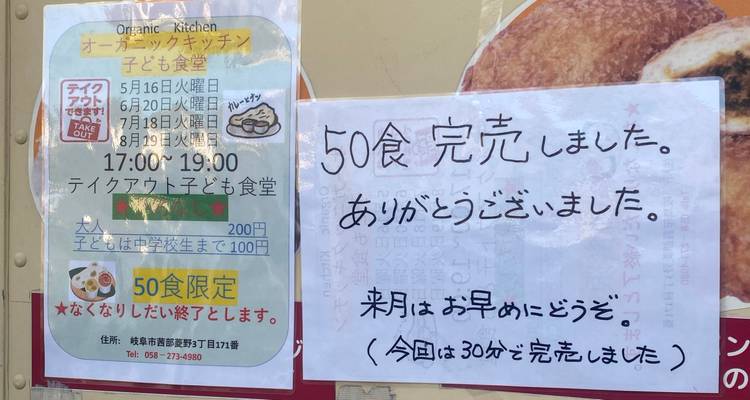 Organic Kitchen
オーガニックキッチン
子ども食堂
テイク
アウト
できます!
TAKE
OUT
5月16日火曜日
6月20日火曜日
7月18日火曜日
8月19日火曜日
カレーとナン
17:00~ 19:00
テイクアウト子ども食堂
大人 200円
子どもは中学校生まで100円
50食限定
★なくなりしだい終了とします。
住所: 岐阜市茜部菱野3丁目171番
Tel: 058－273-4980
50食 完売しました。
ありがとうございました。
来月は お早めにどうぞ。
(今回は30分で完売しました)
ン
の